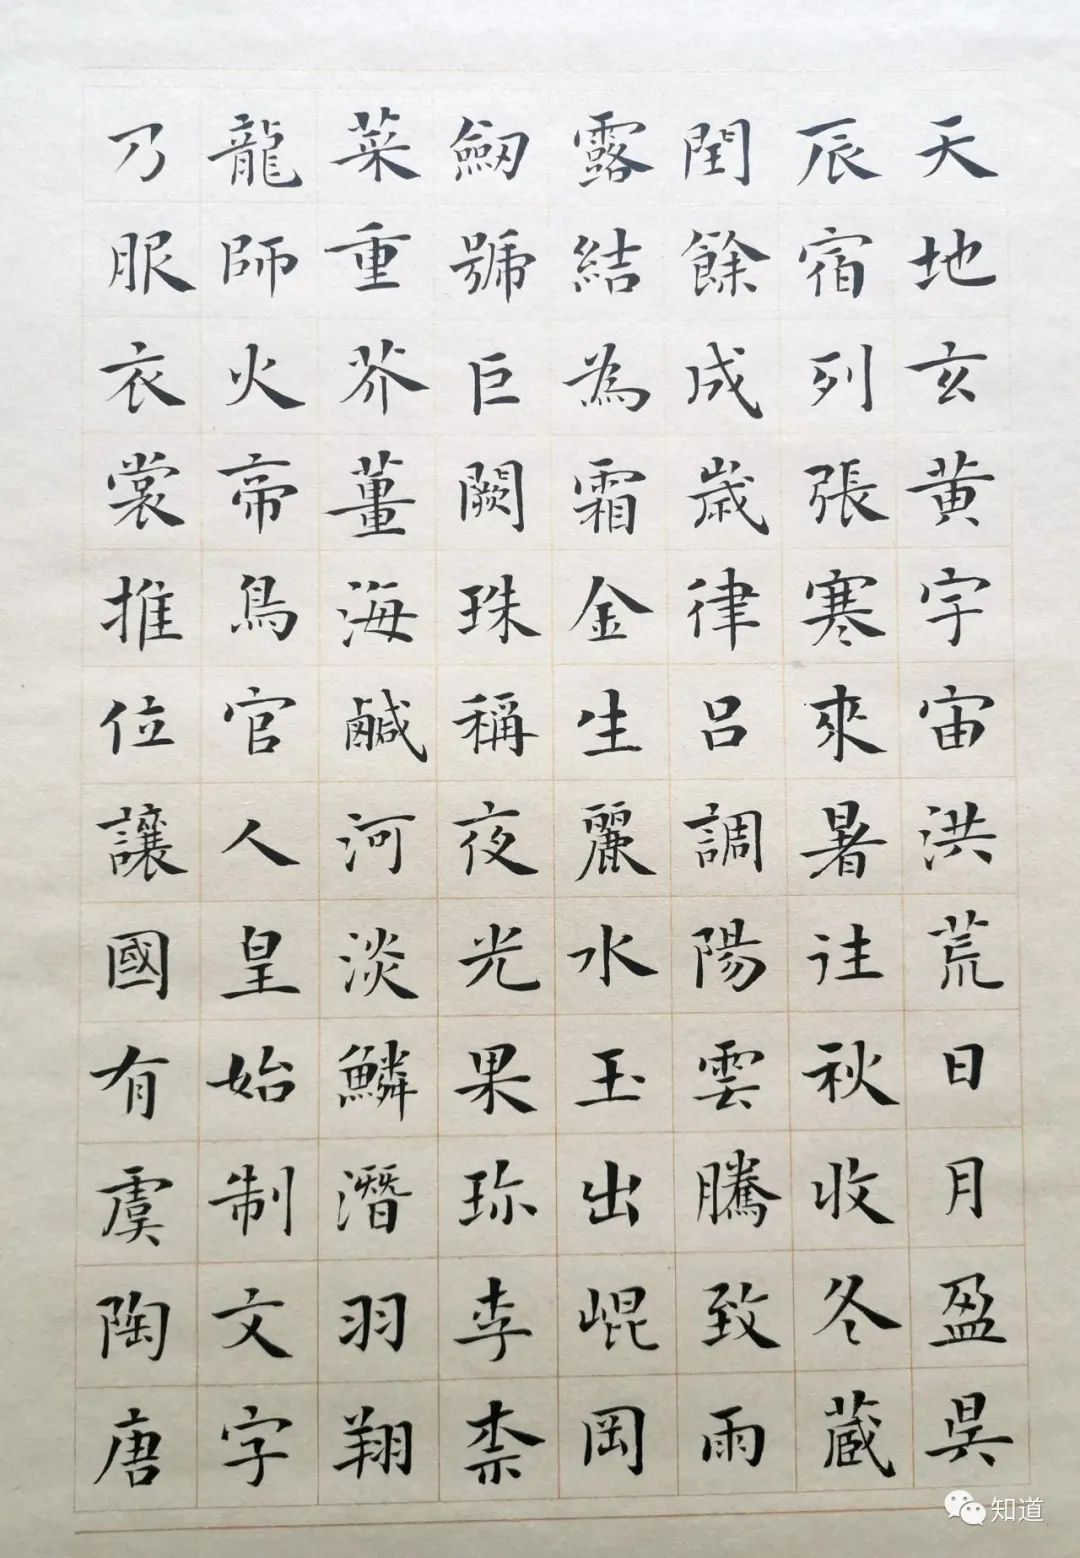 天地玄黄宇宙洪荒日月盈昃
辰宿列張寒來暑往秋收冬蔵
閏餘成歲律呂調陽雲騰致雨
露結為霜金生麗水玉出崐岡
劒號巨闕珠稱夜光果珎李柰
菜重芥薑海鹹河淡鱗潛羽翔
龍師火帝鳥官人皇始制文字
乃服衣裳推位讓國有虞陶唐
知道